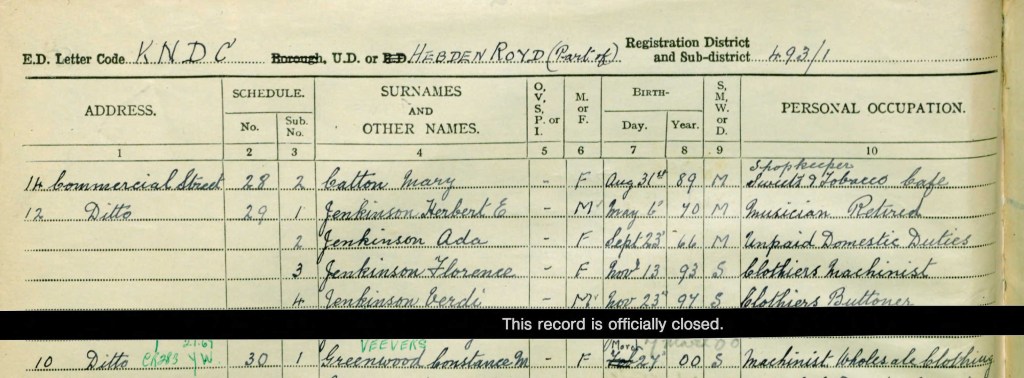 E.D. Letter Code K N D C Borough, U.D. or R.D. HEBDEN ROYD (Part of) Registration District and Sub-district 493/1
ADDRESS. SCHEDULE. No. Sub. No. SURNAMES AND OTHER NAMES. O, V, S, P. or I. M. or F. BIRTH- Day. Year. S, M, W. or D. PERSONAL OCCUPATION.
1 2 3 4 5 6 7 8 9 10
Shopkeeper
14 Commercial Street 28 2 Catton Mary - F Aug 31st 89 M Sweets & Tobacco Cafe
12 Ditto 29 1 Jenkinson Herbert E - M May 6 70 M Musician Retired
2 Jenkinson Ada - F Sept 23 66 M Unpaid Domestic Duties
3 Jenkinson Florence - F Nov 13 93 S Clothiers Machinist
4 Jenkinson Verdi - M Nov 23 97 S Clothiers Buttoner
This record is officially closed.
VEEVERS
10 Ditto CR283 YW 30 1 Greenwood Constance M - F 27 00 S Machinist Wholesale Clothing